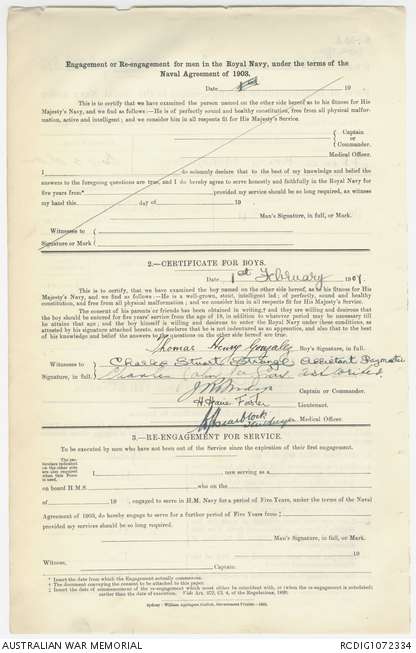 Engagement or Re-engagement for men in the Royal Navy, under the terms of the
Naval Agreement of 1903.
Date 19 .
This is to certify that we have examined the person named on the other side hereof as to his fitness for His
Majesty's Navy, and we find as follows:—He is of perfectly sound and healthy constitution, free from all physical malfor-
mation, active and intelligent; and we consider him in all respects fit for His Majesty's Service.
Captain
or
Commander.
Medical Officer.
I do solemnly declare that to the best of my knowledge and belief the
answers to the foregoing questions are true, and I do hereby agree to serve honestly and faithfully in the Royal Navy for
five years from* provided my service should be so long required, as witness
my hand this day of 19 .
Man's Signature, in full, or Mark.
Witnesses to
Signature or Mark
2.—CERTIFICATE FOR BOYS.
Date 1st February 190
This is to certify, that we have examined the boy named on the other side hereof, as to his fitness for His Majesty's
Navy, and we find as follows:—He is a well-grown, stout, intelligent lad; of perfectly, sound and healthy
constitution, and free from all physical malformation; and we consider him in all respects fit for His Majesty's Service.
The consent of his parents or friends has been obtained in writing,† and they are willing and desirous that
the boy should be entered for five years' service from the age of 18, in addition to whatever period may be necessary till
he attains that age; and the boy himself is willing and desirous to enter the Royal Navy under these conditions, as
attested by his signature attached hereto, and declares that he is not indentured as an apprentice, and also that to the best
of his knowledge and belief the answers to the questions on the other side hereof are true.
Thomas Henry Gonzales Boy's Signature, in full.
Witnesses to Charles Stuart Assistant Paymaster
Signature, in full. John
Captain or Commander.
H Hare Foster Lieutenant.
Medical Officer.
3.—RE-ENGAGEMENT FOR SERVICE.
To be executed by men who have not been out of the Service since the expiration of their first engagement.
The particulars indicated on the other side are also required when this Form is used.
I now serving as a
on board H.M.S. who on the
of 19 , engaged to serve in H.M. Navy for a period of Five Years, under the terms of the Naval
Agreement of 1903, do hereby engage to serve for a further period of Five Years from‡
provided my services should be so long required.
Man's Signature, in full, or Mark.
19
Witness, Captain
* Insert the date from which the Engagement actually commences.
† The document conveying the consent to be attached to this paper.
‡ Insert the date of commencement of the re-engagement which must either be coincident with, or (when the re-engagement is antedated)
earlier than the date of execution. Vide Art. 372, Cl. 4, of the Regulations, 1899.
Sydney: William Applegate Gullick, Government Printer.
AUSTRALIAN WAR MEMORIAL
RCDIG1072334